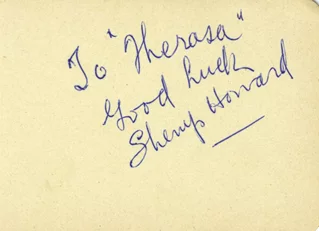 To "Therasa"
Good Luck
Shemp Howard